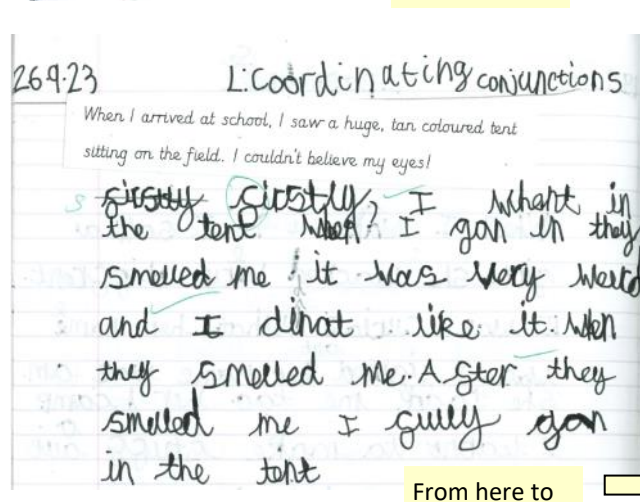 26.9.23 L: Coordinating conjunctions
When I arrived at school, I saw a huge, tan coloured tent
sitting on the field. I couldn't believe my eyes!
s firstly firstly, I whant in
the tent when I gan in they
smelled me it was very weard
and I dinat like it when
they smelled me. After they
smelled me I gan
in the tent
From here to